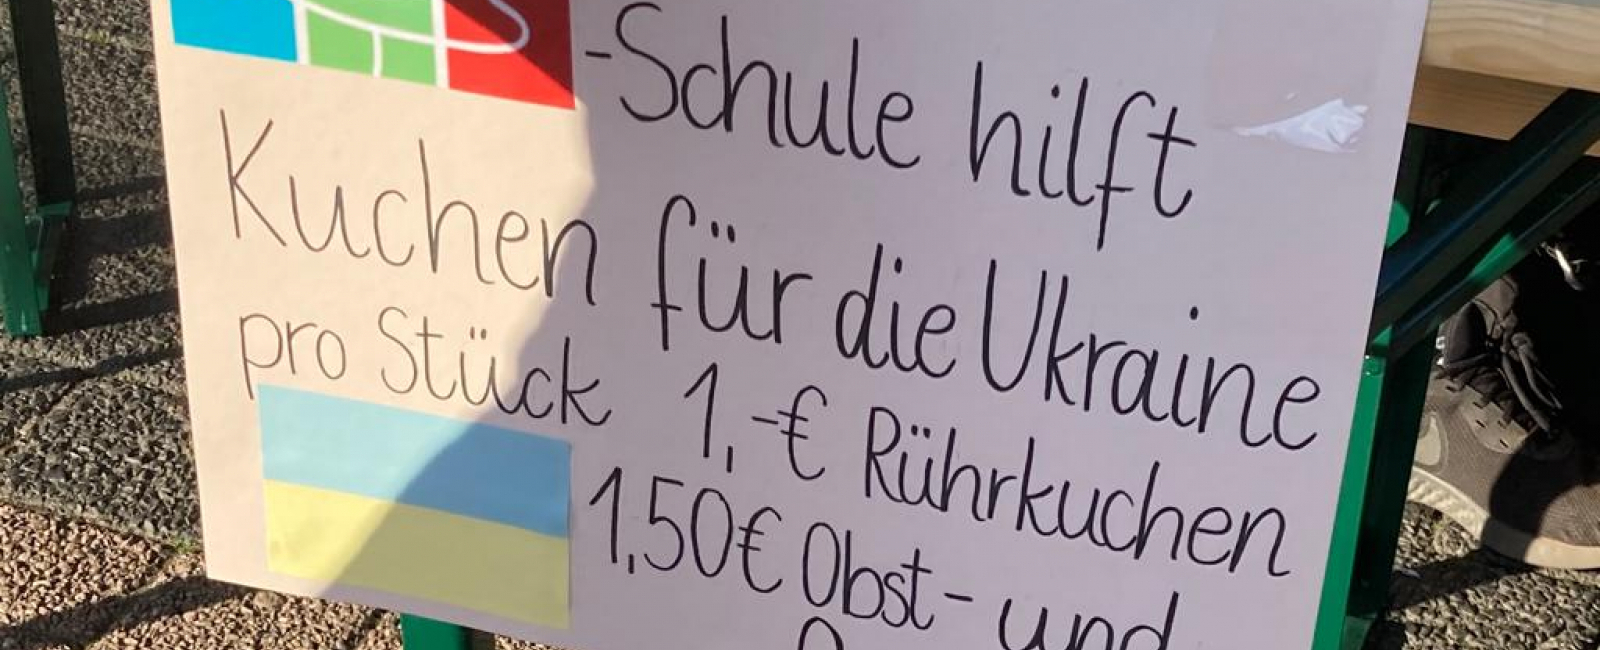 -Schule hilft
Kuchen für die Ukraine
pro Stück 1,-€ Rührkuchen
1,50€ Obst- und